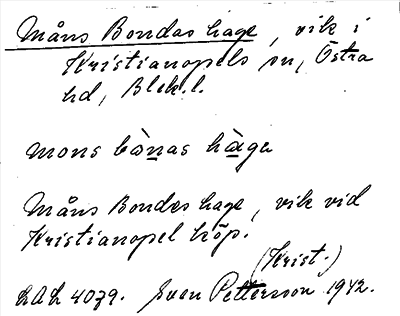 Måns Bondas hage, vik i
Kristianopels sn, Östra
hd, Blek. l.
mons bò̱nas hà̱ga
Måns Bondes hage, vik vid
Kristianopel köp.
(Krist.)
LAL 4039. Sven Petterson 1942.